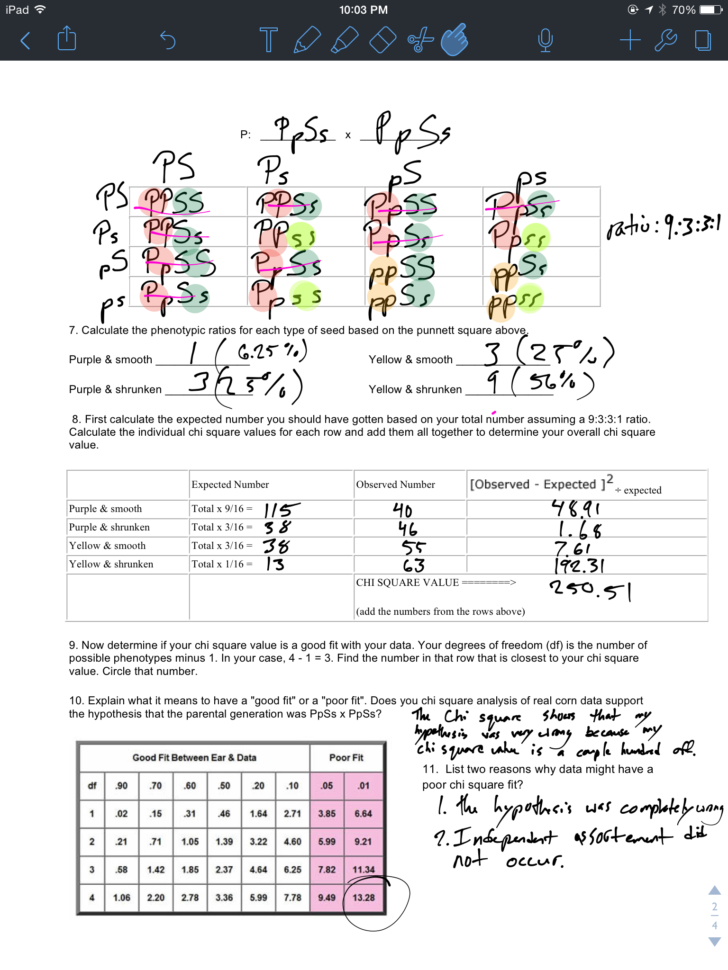 iPad 10:03 PM 70%
T
P: PpSs x PpSs
PS Ps pS ps
PS PPSS PPSs PpSS PpSs
Ps PPSs PPss PpSs Ppss
pS PpSS PpSs ppSS ppSs
ps PpSs Ppss ppSs ppss
ratio: 9:3:3:1
7. Calculate the phenotypic ratios for each type of seed based on the punnett square above.
Purple & smooth 1 (6.25%) Yellow & smooth 3 (25%)
Purple & shrunken 3 (25%) Yellow & shrunken 9 (56%)
8. First calculate the expected number you should have gotten based on your total number assuming a 9:3:3:1 ratio.
Calculate the individual chi square values for each row and add them all together to determine your overall chi square
value.
Expected Number Observed Number [Observed - Expected ]2 ÷ expected
Purple & smooth Total x 9/16 = 115 40 48.91
Purple & shrunken Total x 3/16 = 38 46 1.68
Yellow & smooth Total x 3/16 = 38 55 7.61
Yellow & shrunken Total x 1/16 = 13 63 192.31
CHI SQUARE VALUE ========> 250.51
(add the numbers from the rows above)
9. Now determine if your chi square value is a good fit with your data. Your degrees of freedom (df) is the number of
possible phenotypes minus 1. In your case, 4 - 1 = 3. Find the number in that row that is closest to your chi square
value. Circle that number.
10. Explain what it means to have a "good fit" or a "poor fit". Does you chi square analysis of real corn data support
the hypothesis that the parental generation was PpSs x PpSs?
The Chi square shows that my
hypothesis was very wrong because my
chi square value is a couple hundred off.
Good Fit Between Ear & Data Poor Fit
df .90 .70 .60 .50 .20 .10 .05 .01
1 .02 .15 .31 .46 1.64 2.71 3.85 6.64
2 .21 .71 1.05 1.39 3.22 4.60 5.99 9.21
3 .58 1.42 1.85 2.37 4.64 6.25 7.82 11.34
4 1.06 2.20 2.78 3.36 5.99 7.78 9.49 13.28
11. List two reasons why data might have a
poor chi square fit?
1. the hypothesis was completely wrong
2. Independent assortement did
not occur.
2
4